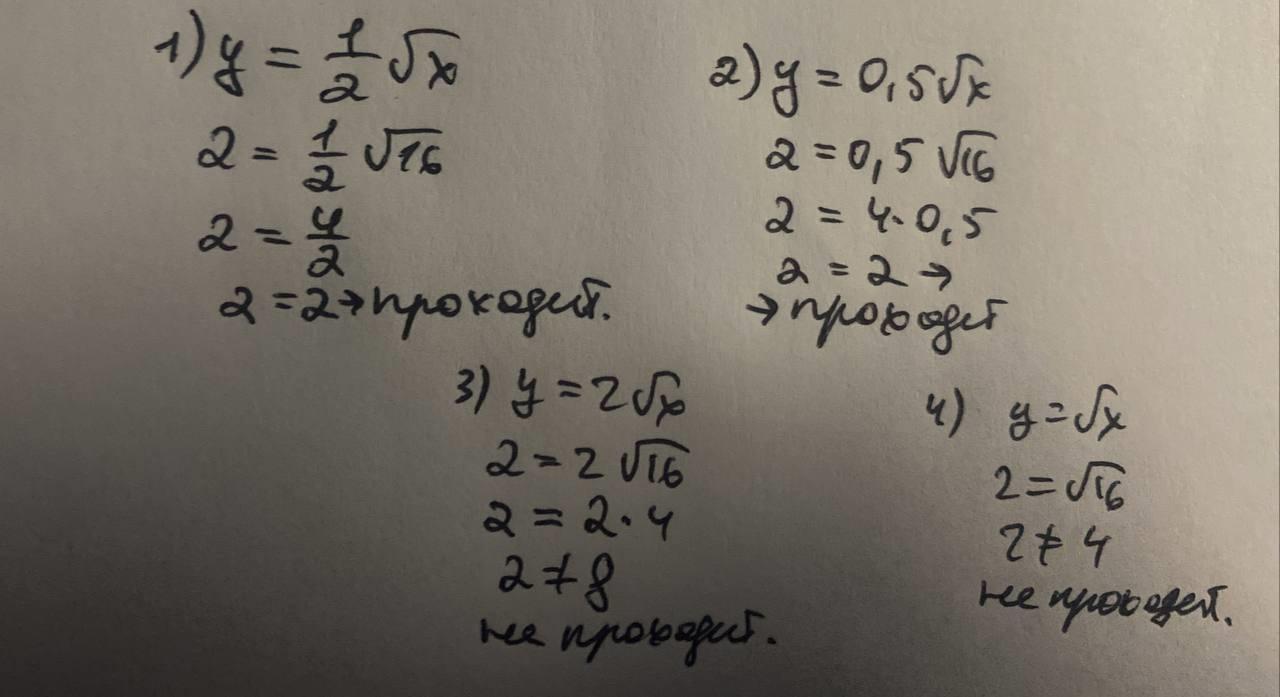 1) y = 1/2 √x
2 = 1/2 √16
2 = 4/2
2 = 2 → проходит.
2) y = 0,5√x
2 = 0,5 √16
2 = 4 · 0,5
2 = 2 →
→ проходит
3) y = 2√x
2 = 2 √16
2 = 2 · 4
2 ≠ 8
не проходит.
4) y = √x
2 = √16
2 ≠ 4
не проходит.